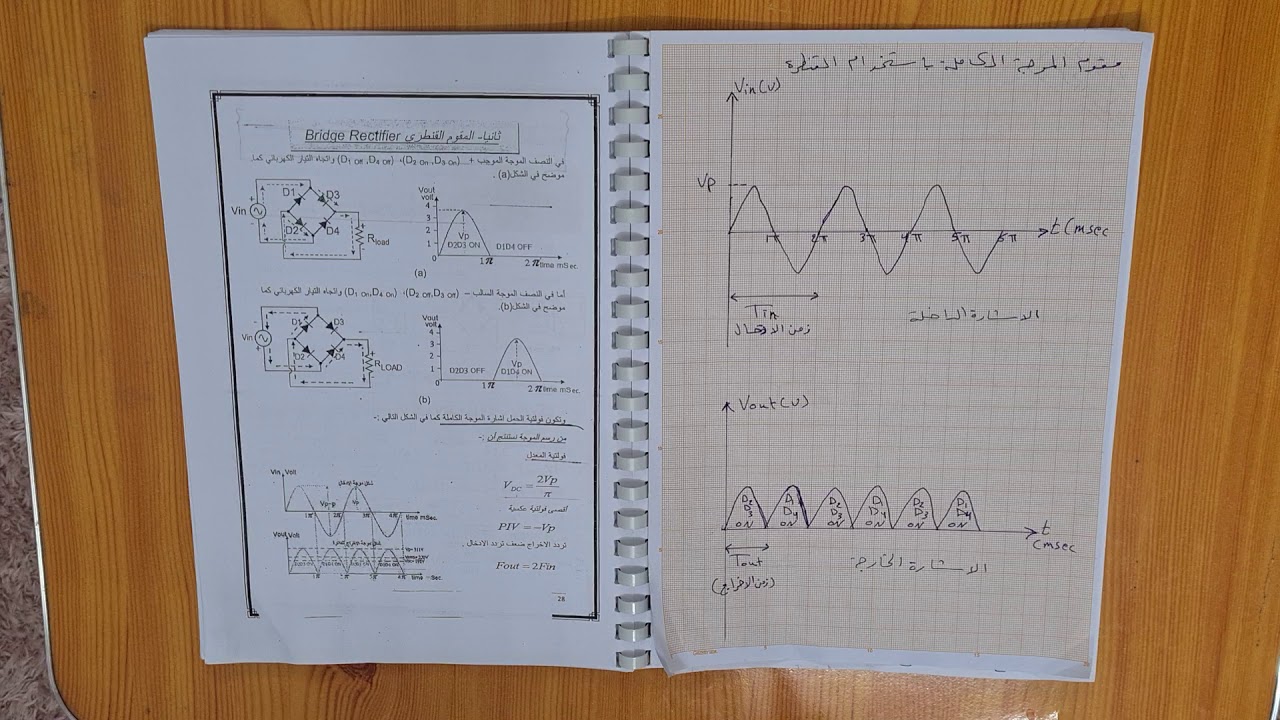 ثانيا- المقوم القنطري Bridge Rectifier
في النصف الموجة الموجب + ....(D2 On ,D3 On)، (D1 Off ,D4 Off) واتجاه التيار الكهربائي كما
موضح في الشكل(a) .
Vin
D1
D3
D2
D4
Rload
Vout
volt
4
3
2
1
0
Vp
D2D3 ON
D1D4 OFF
1π
2π time mSec.
(a)
أما في النصف الموجة السالب – (D2 Off,D3 Off)، (D1 On,D4 On) واتجاه التيار الكهربائي كما
موضح في الشكل(b).
Vin
D1
D3
D2
D4
RLOAD
Vout
volt
4
3
2
1
0
D2D3 OFF
Vp
D1D4 ON
1π
2π time mSec.
(b)
وتكون فولتية الحمل لشارة الموجة الكاملة كما في الشكل التالي :-
من رسم الموجة نستنتج أن :-
فولتية المعدل
VDC = 2Vp/π
أقصى فولتية عكسية
PIV = –Vp
تردد الاخراج ضعف تردد الادخال .
Fout = 2Fin
Vin Volt
Vp-p
Vp
1π
2π
3π
4π
time mSec.
Vout Volt
1π
2π
3π
4π
time mSec.
28
مقوم الموجة الكاملة باستخدام القنطرة
Vin(v)
Vp
1π
2π
3π
4π
5π
6π
t(msec
Tin
زمن الادخال
الاشارة الداخلة
Vout(v)
D2 D3 ON
D1 D4 ON
D2 D3 ON
D1 D4 ON
D2 D3 ON
D1 D4 ON
t
(msec
Tout
(زمن الاخراج)
الاشارة الخارجة